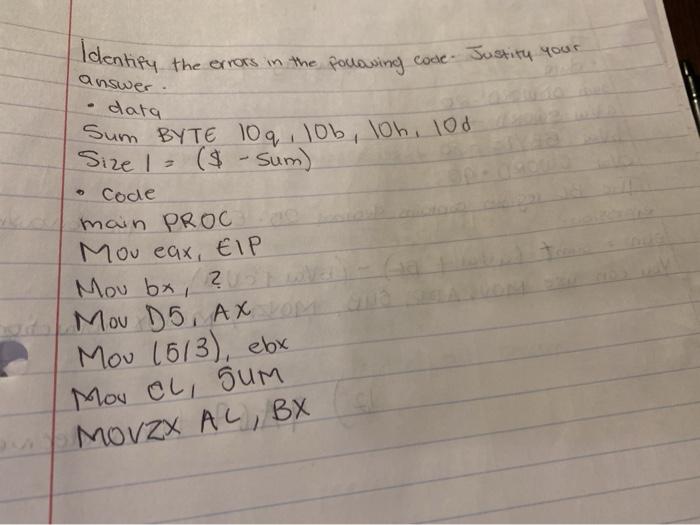 Identify the errors in the following code. Justify your
answer.
• data
Sum BYTE 10q, 10b, 10h, 10d
Size 1 = ($ - sum)
• code
main PROC
Mov eax, EIP
Mov bx, ?
Mov DS, AX
Mov (5/3), ebx
Mov CL, SUM
MOVZX AL, BX